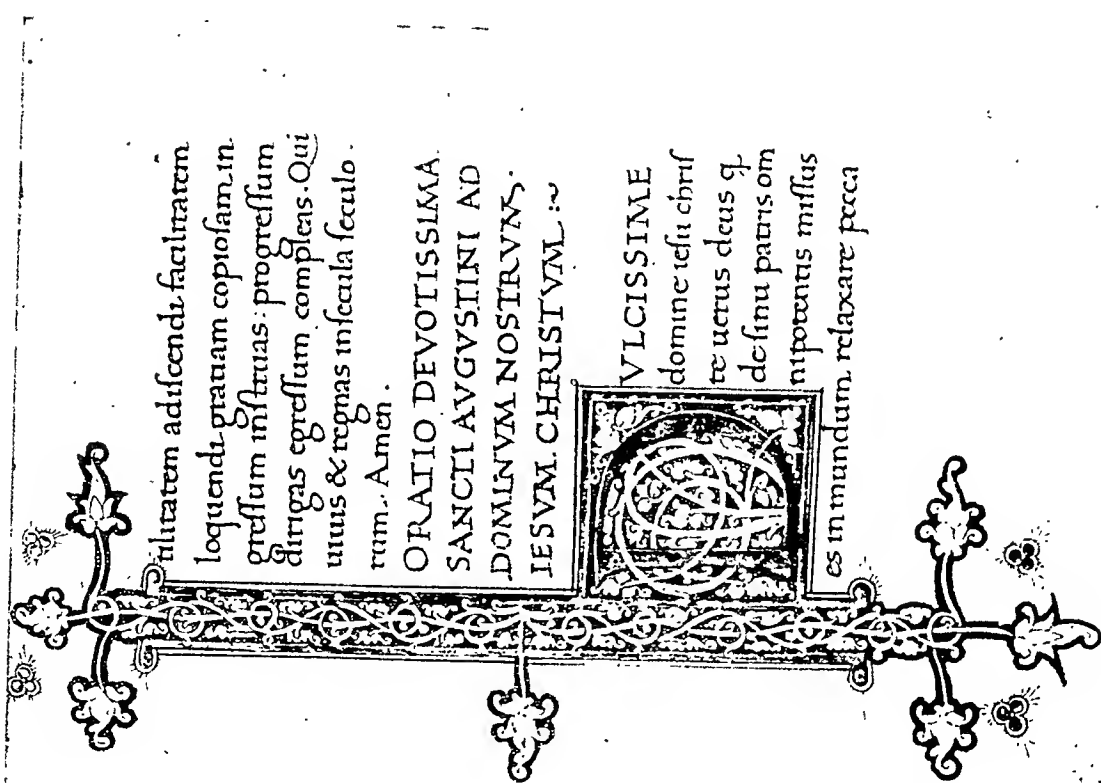 tilitatem adiscendi facilitatem
loquendi gratiam copiosam. in
gressum instruas: progressum
dirigas egressum compleas. Qui
uiuis & regnas in secula seculo
rum. Amen.
ORATIO DEVOTISSIMA
SANCTI AVGVSTINI AD
DOMINVM NOSTRVM.
IESVM. CHRISTVM. :~
DVLCISSIME
domine iesu chris
te uerus deus q
de sinu patris om
nipotentis missus
es in mundum relaxare pecca